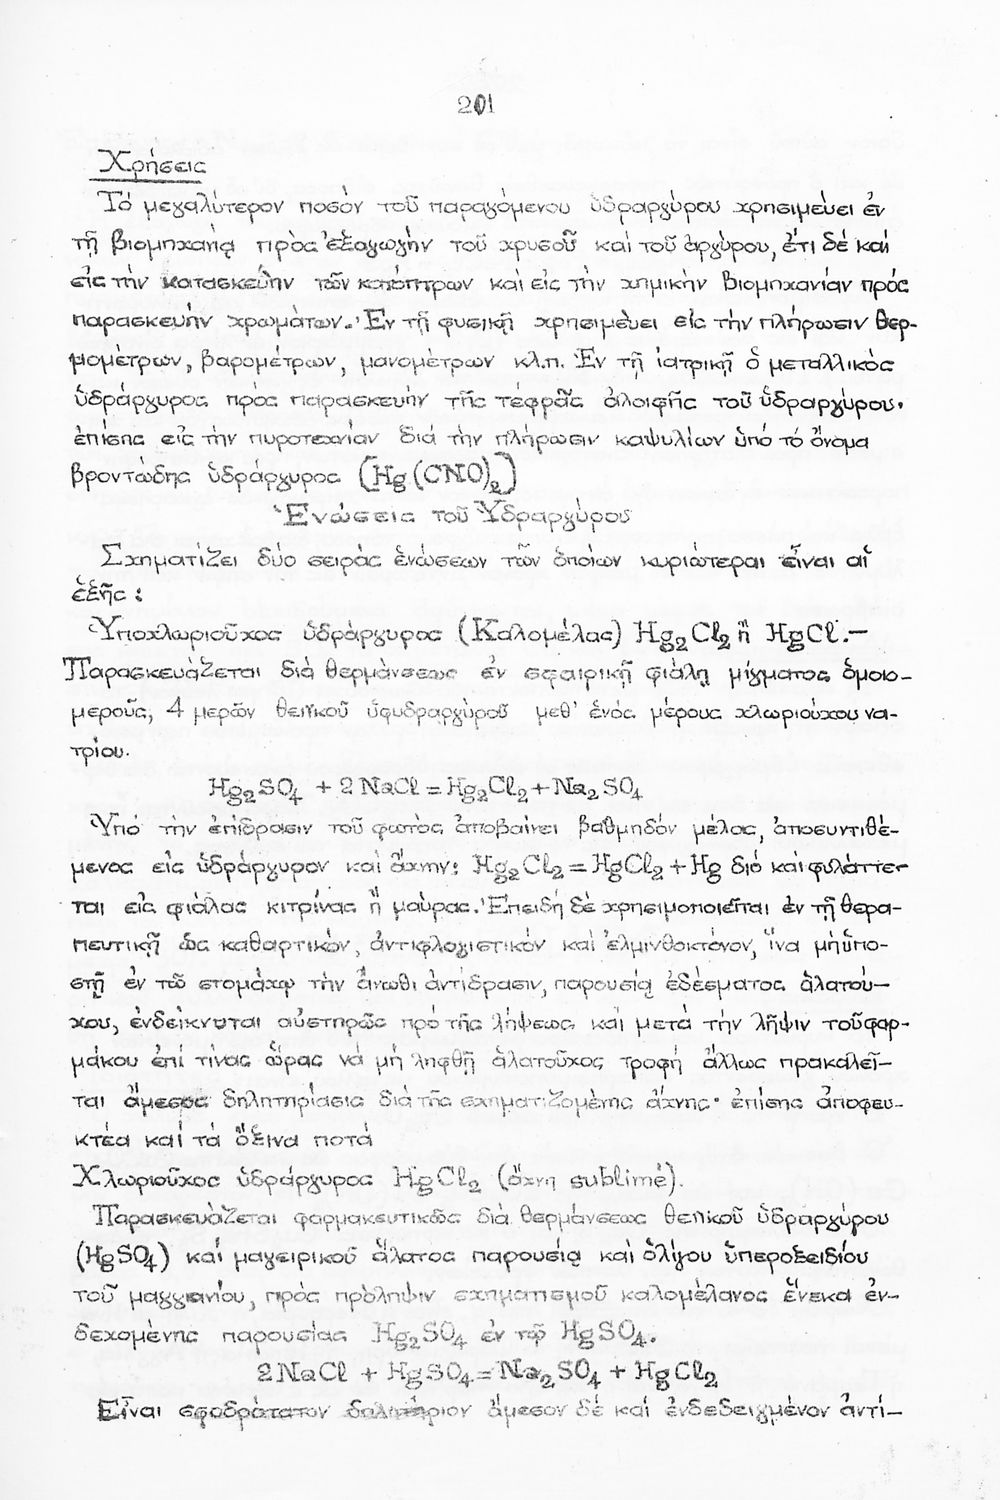 201
Χρήσεις
Τό μεγαλύτερον ποσόν τοῦ παραγόμενου ὑδραργύρου χρησιμεύει ἐν
τῇ βιομηχανίᾳ πρὸς ἐξαγωγήν τοῦ χρυσοῦ καί τοῦ ἀργύρου, ἔτι δέ καί
εἰς τήν κατασκευήν τῶν κατόπτρων καί εἰς τήν χημικήν βιομηχανίαν πρός
παρασκευήν χρωμάτων. Ἐν τῇ φυσικῇ χρησιμεύει εἰς τήν πλήρωσιν θερ-
μομέτρων, βαρομέτρων, μανομέτρων κλ.π. Ἐν τῇ ἰατρικῇ ὁ μεταλλικός
ὑδράργυρος πρός παρασκευήν τῆς τεφρᾶς ἀλοιφῆς τοῦ ὑδραργύρου.
ἐπίσης εἰς τήν πυροτεχνίαν διά τήν πλήρωσιν καψυλίων ὑπό τό ὄνομα
βροντώδης ὑδράργυρος (Hg(CNO)₂)
Ἑνώσεις τοῦ Ὑδραργύρου
Σχηματίζει δύο σειράς ἑνώσεων τῶν ὁποίων κυριώτεραι εἶναι αἱ
ἑξῆς:
Ὑποχλωριοῦχος ὑδράργυρος (Καλομέλας) Hg₂Cl₂ ἤ HgCl.—
Παρασκευάζεται διά θερμάνσεως ἐν σφαιρικῇ φιάλῃ μίγματος ὁμοιο-
μεροῦς, 4 μερῶν θειϊκοῦ ὑφυδραργύρου μεθ' ἑνός μέρους χλωριούχου να-
τρίου.
Hg₂SO₄ + 2NaCl = Hg₂Cl₂ + Na₂SO₄
Ὑπό τήν ἐπίδρασιν τοῦ φωτός ἀποβαίνει βαθμηδόν μέλας, ἀποσυντιθέ-
μενος εἰς ὑδράργυρον καί ἄχνην: Hg₂Cl₂ = HgCl₂ + Hg διό καί φυλάττε-
ται εἰς φιάλας κιτρίνας ἤ μαύρας. Ἐπειδή δέ χρησιμοποιεῖται ἐν τῇ θερα-
πευτικῇ ὡς καθαρτικόν, ἀντιφλογιστικόν καί ἑλμινθοκτόνον, ἵνα μή ὑπο-
στῇ ἐν τῷ στομάχῳ τήν ἄνωθι ἀντίδρασιν, παρουσίᾳ ἐδέσματος ἁλατού-
χου, ἐνδείκνυται αὐστηρῶς πρό τῆς λήψεως καί μετά τήν λῆψιν τοῦ φαρ-
μάκου ἐπί τίνας ὥρας νά μή ληφθῇ ἁλατοῦχος τροφή ἄλλως πρακαλεῖ-
ται ἄμεσος δηλητηρίασις διά τῆς σχηματιζομένης ἄχνης· ἐπίσης ἀποφευ-
κτέα καί τά ὄξινα ποτά
Χλωριοῦχος ὑδράργυρος HgCl₂ (ἄχνη sublimé).
Παρασκευάζεται φαρμακευτικῶς διά θερμάνσεως θειϊκοῦ ὑδραργύρου
(HgSO₄) καί μαγειρικοῦ ἅλατος παρουσίᾳ καί ὀλίγου ὑπεροξειδίου
τοῦ μαγγανίου, πρός πρόληψιν σχηματισμοῦ καλομέλανος ἕνεκα ἐν-
δεχομένης παρουσίας Hg₂SO₄ ἐν τῷ HgSO₄.
2NaCl + HgSO₄ = Na₂SO₄ + HgCl₂
Εἶναι σφοδρότατον δηλητήριον ἄμεσον δέ καί ἐνδεδειγμένον ἀντί-